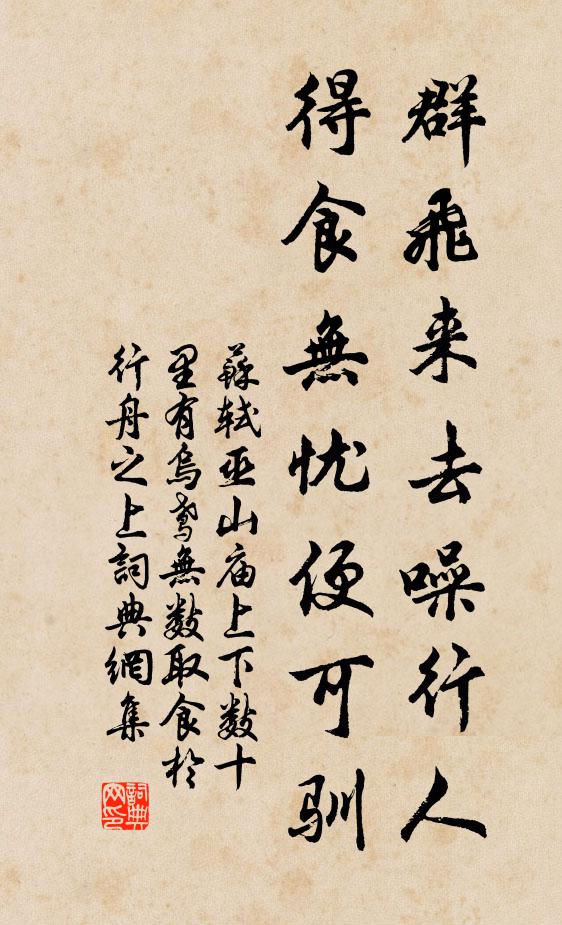 群飛来去噪行人
得食無忧便可驯
蘇轼巫山庙上下数十
里有烏鸢無数取食於
行舟之上詞典網集
詞典
网印